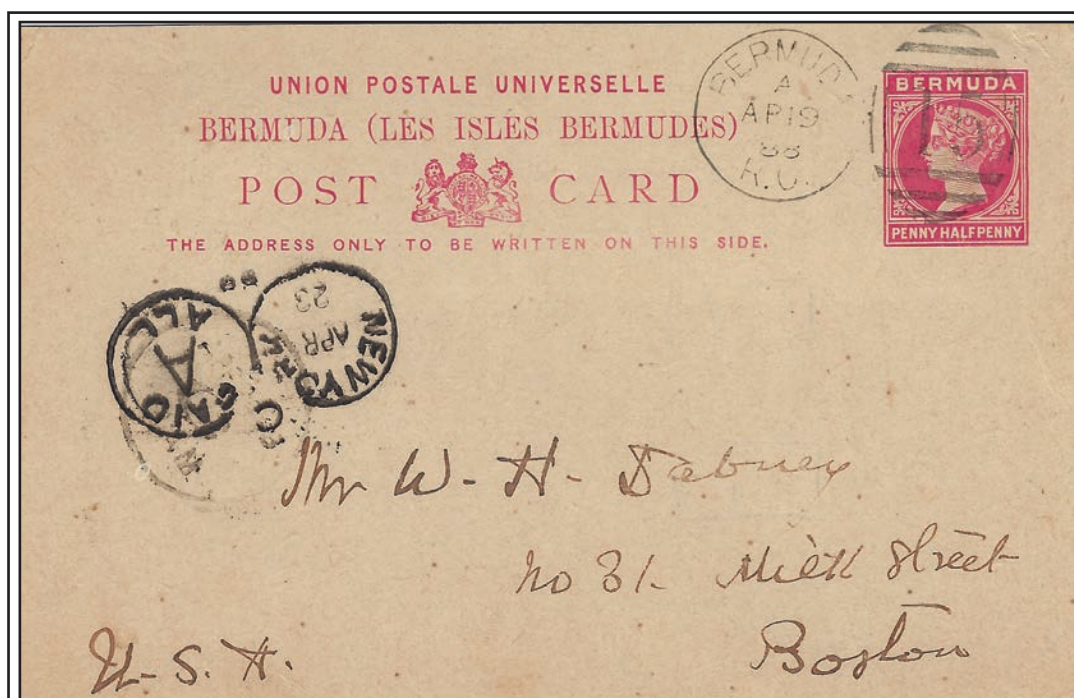 UNION POSTALE UNIVERSELLE
BERMUDA (LES ISLES BERMUDES)
POST CARD
THE ADDRESS ONLY TO BE WRITTEN ON THIS SIDE.
BERMUDA
A
AP 19
88
BERMUDA
PENNY HALFPENNY
NEW YORK
APR
23
88
PAID
A
ALL
Mr W. H. Dabney
No 31. Milk Street
Boston
U.S.A.